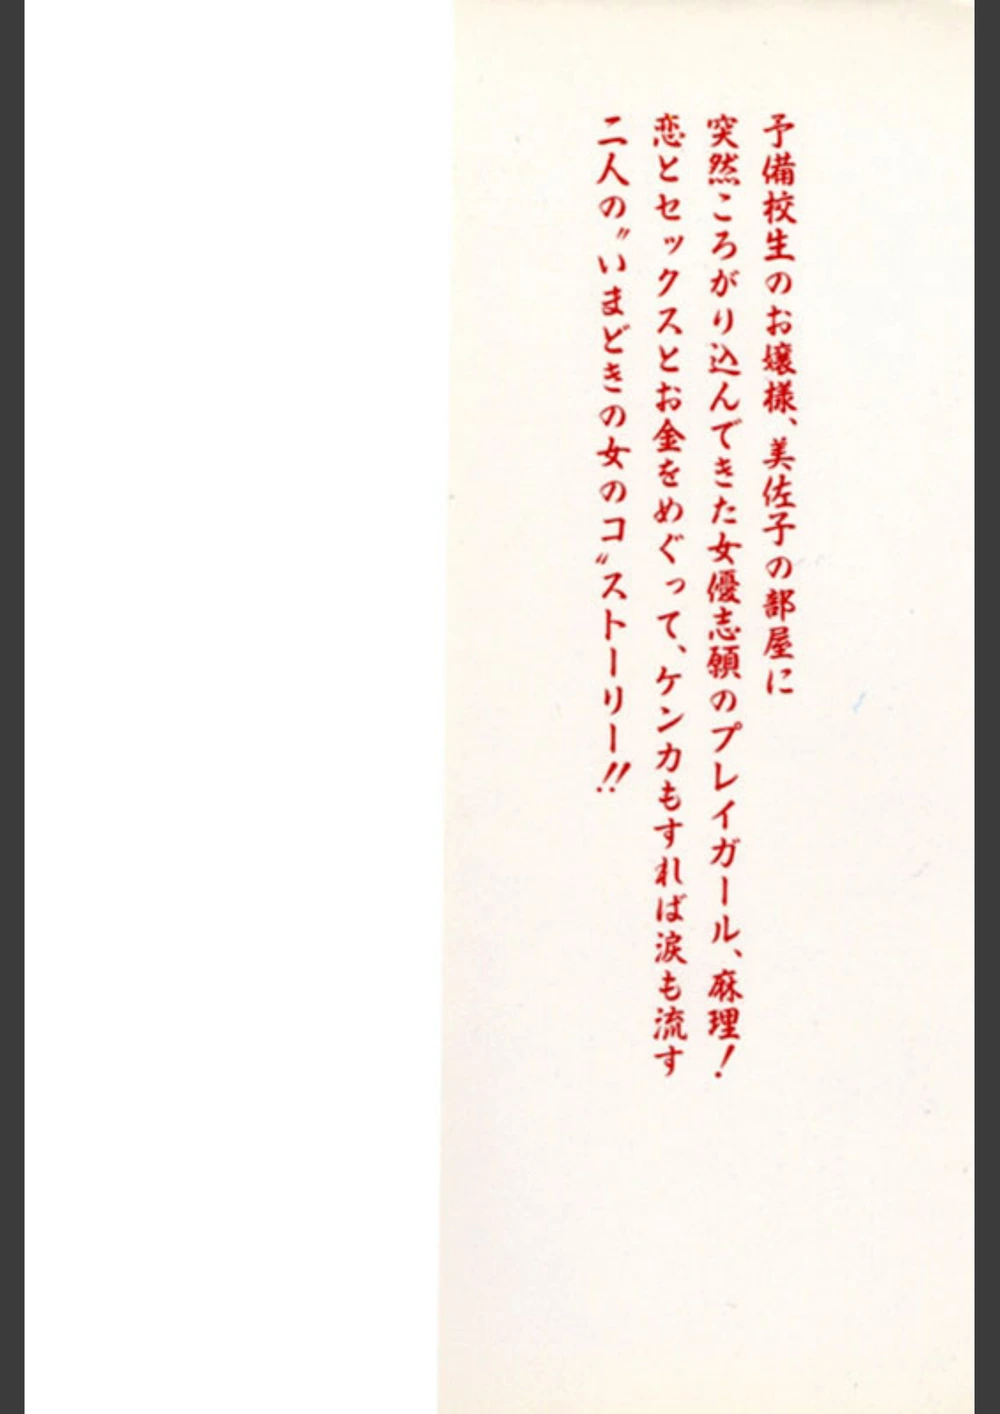 予備校生のお嬢様、美佐子の部屋に
突然ころがり込んできた女優志願のプレイガール、麻理!
恋とセックスとお金をめぐって、ケンカもすれば涙も流す
二人の〝いまどきの女のコ〟ストーリー!!